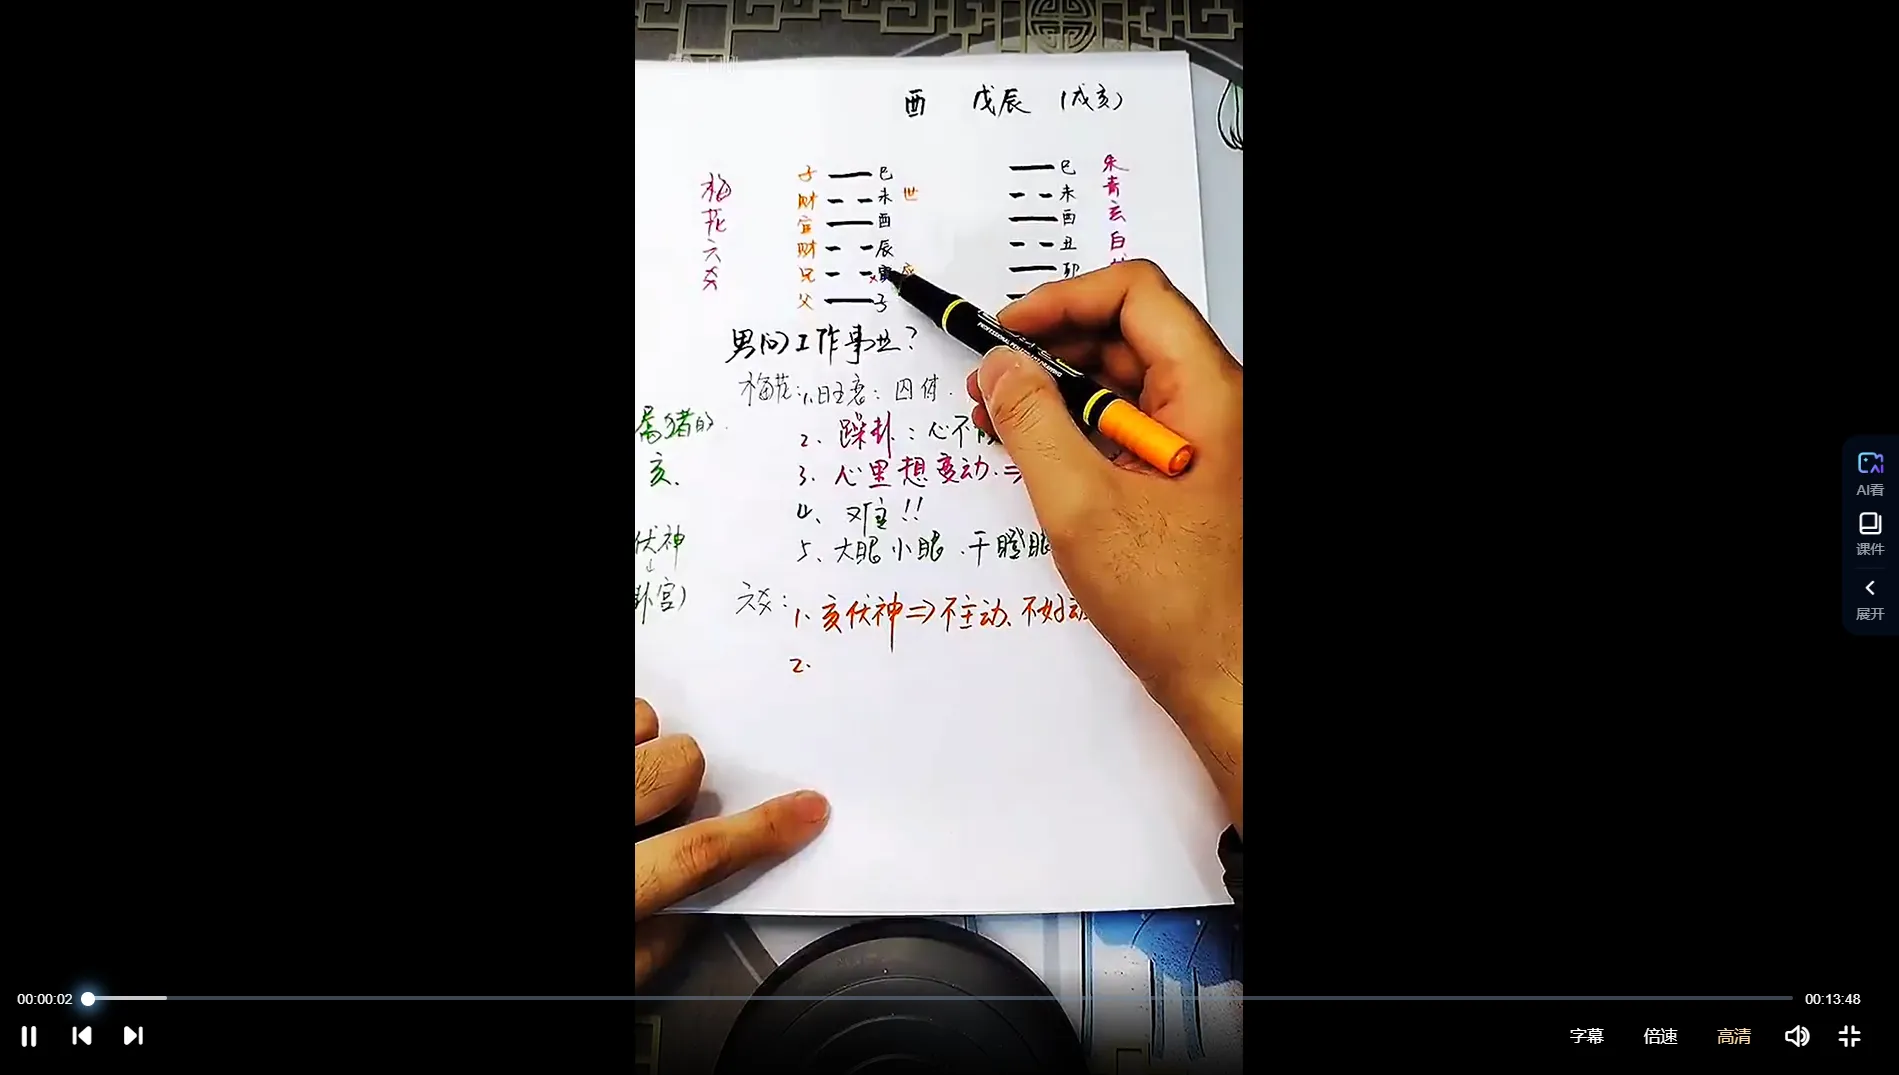 酉 戊辰 (戌亥)
梅花六爻
子 巳
财 未 世
官 酉
财 辰
兄 × 寅 应
父 子
巳 朱
未 青
酉 玄
丑 白
卯
男问工作事业?
梅花: 1、旺衰: 囚体.
2. 躁卦: 心不
3. 心里想变动. ⇒
4、难!!
5、大眼小眼.干瞪眼
属猪的.
亥、
伏神
↓
卦宫)
六爻:
1、亥伏神⇒不主动、不好动
2.
PROFESSIONAL
AI看
课件
展开
00:00:02
00:13:48
字幕 倍速 高清